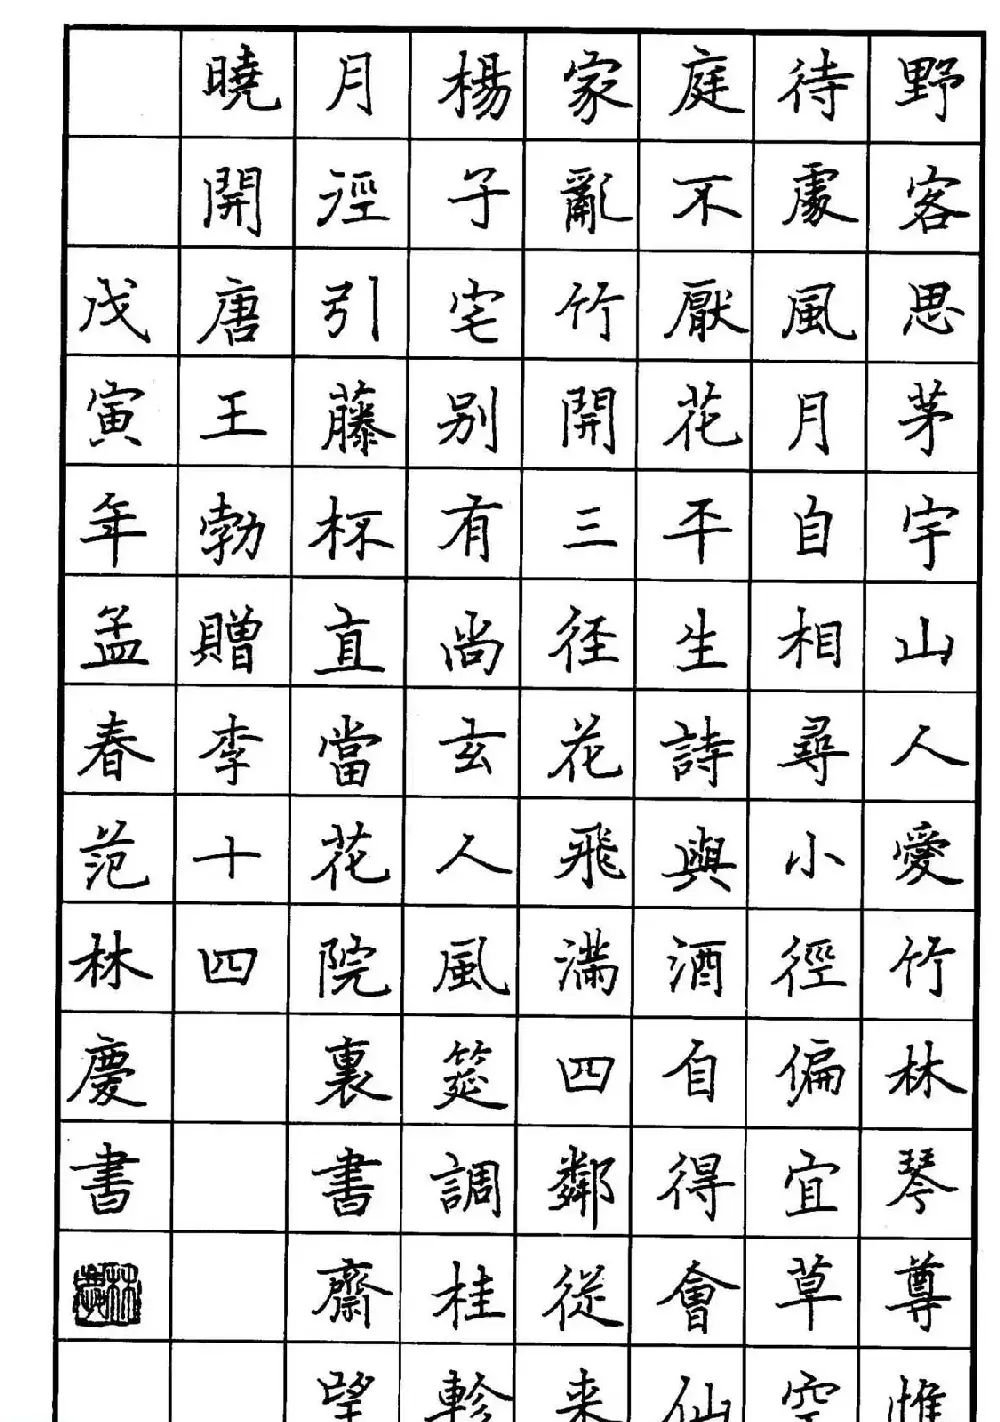 野客思茅宇山人愛竹林琴尊惟
待處風月自相尋小徑偏宜草空
庭不厭花平生詩與酒自得會仙
家亂竹開三径花飛滿四鄰從来
楊子宅别有尚玄人風筵調桂軫
月涇引藤杯直當花院裏書齋望
曉開唐王勃贈李十四
戊寅年孟春范林慶書